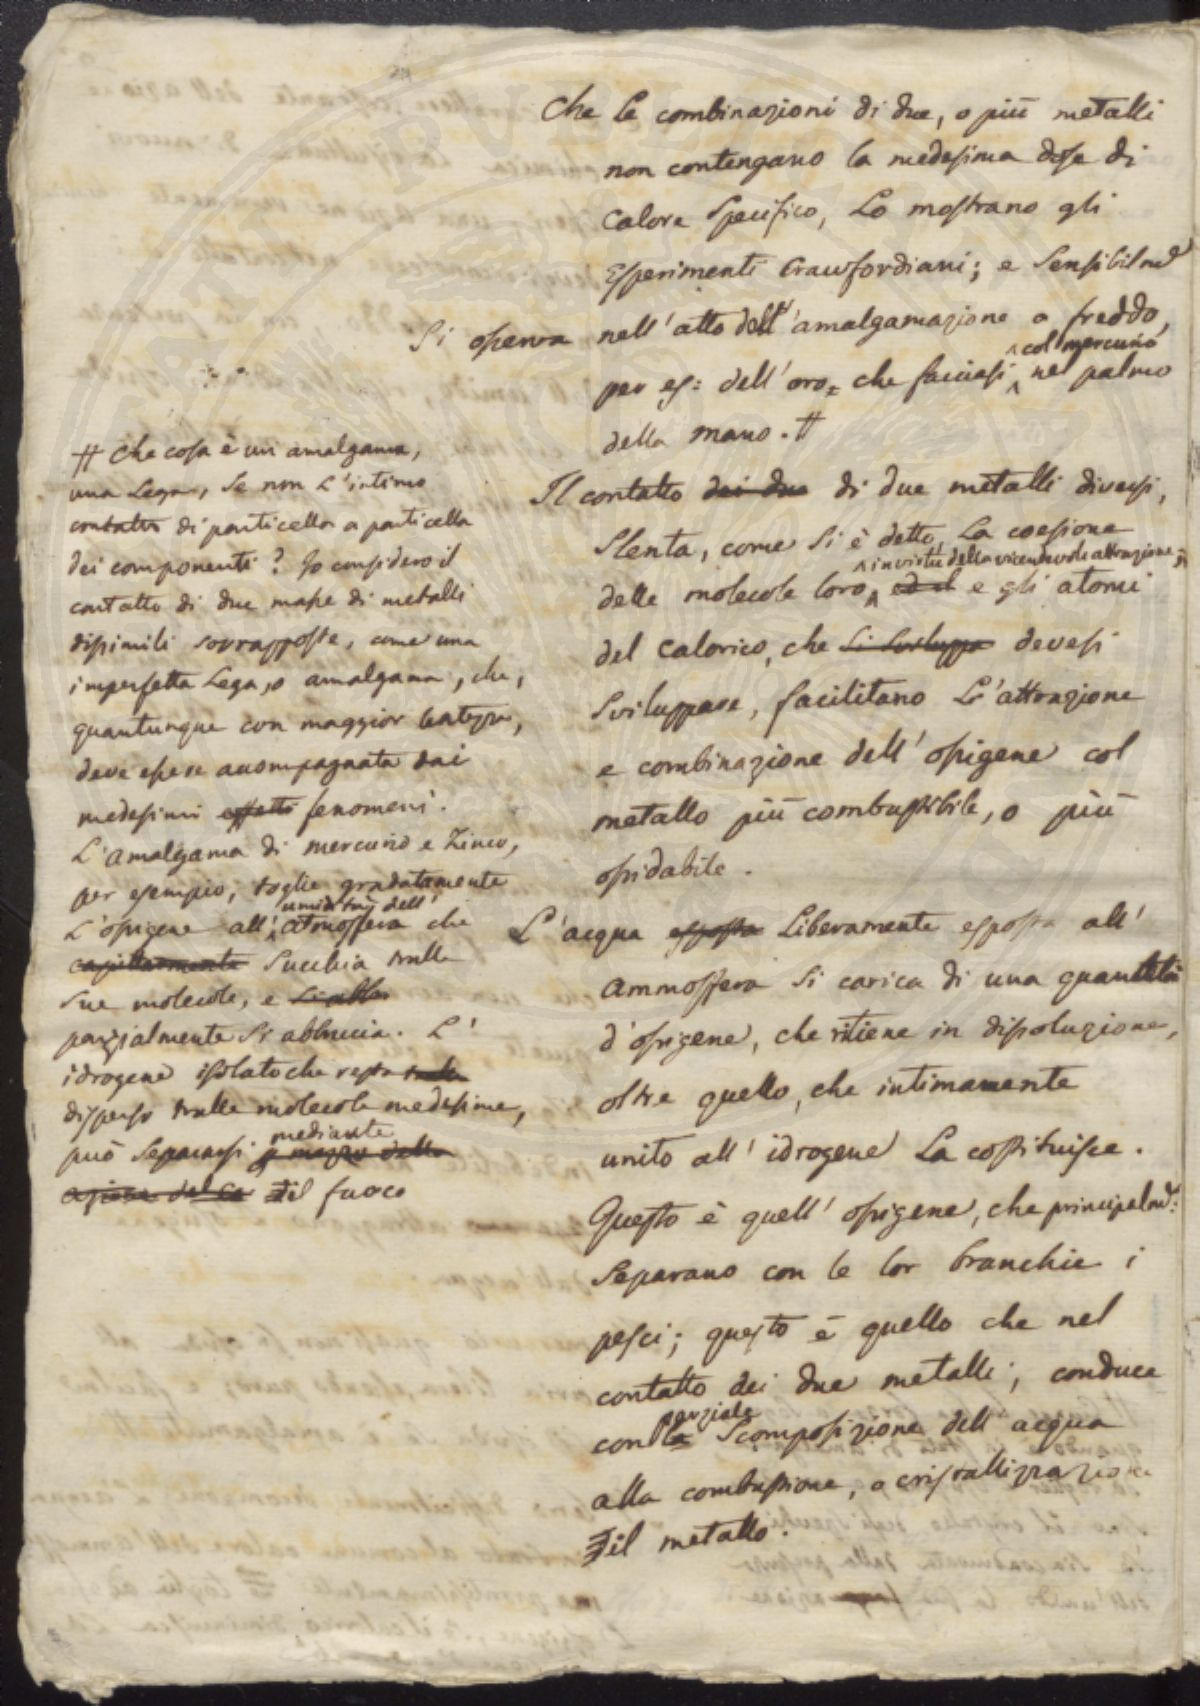 Che le combinazioni di due, o più metalli
non contengano la medesima dose di
calore specifico, lo mostrano gli
Esperimenti Crawfordiani; e sensibilmᵉ
si osserva nell'atto dell'amalgamazione a freddo,
per es: dell'oro, che facciasi ^ col mercurio nel palmo
della mano. #
Il contatto dei due di due metalli diversi,
slenta, come si è detto, la coesione
delle molecole loro ^ in virtù della vicendevole attrazione; ed il e gli atomi
del calorico, che si sviluppa devesi
sviluppare, facilitano l'attrazione
e combinazione dell'ossigene col
metallo più combustibile, o più
ossidabile.
L'acqua esposta liberamente esposta all'
ammosfera si carica di una quantità
d'ossigene, che ritiene in dissoluzione,
oltre quello, che intimamente
unito all'idrogene la costituisce.
Questo è quell'ossigene, che principalmᵉ:
separano con le lor branchie i
pesci; questo è quello che nel
contatto dei due metalli, conduce
con la parziale scomposizione dell'acqua
alla combustione, o cristallizzazione
del metallo.
# Che cosa è un amalgama,
una lega, se non l'intimo
contatto di particella a particella
dei componenti? Io considero il
contatto di due masse di metalli
dissimili sovrapposte, come una
imperfetta lega, o amalgama, che,
quantunque con maggior lentezza,
deve essere accompagnata dai
medesimi effetti fenomeni.
L'amalgama di mercurio e zinco,
per esempio, toglie gradatamente
l'ossigene all' ^ umidità dell' atmosfera che
capillarmente succhia tralle
sue molecole, e si abb
parzialmente si abbrucia. L'
idrogene isolato che resta tralle
disperso tralle molecole medesime,
può separarsi p mezzo della mediante
azione del ca il fuoco